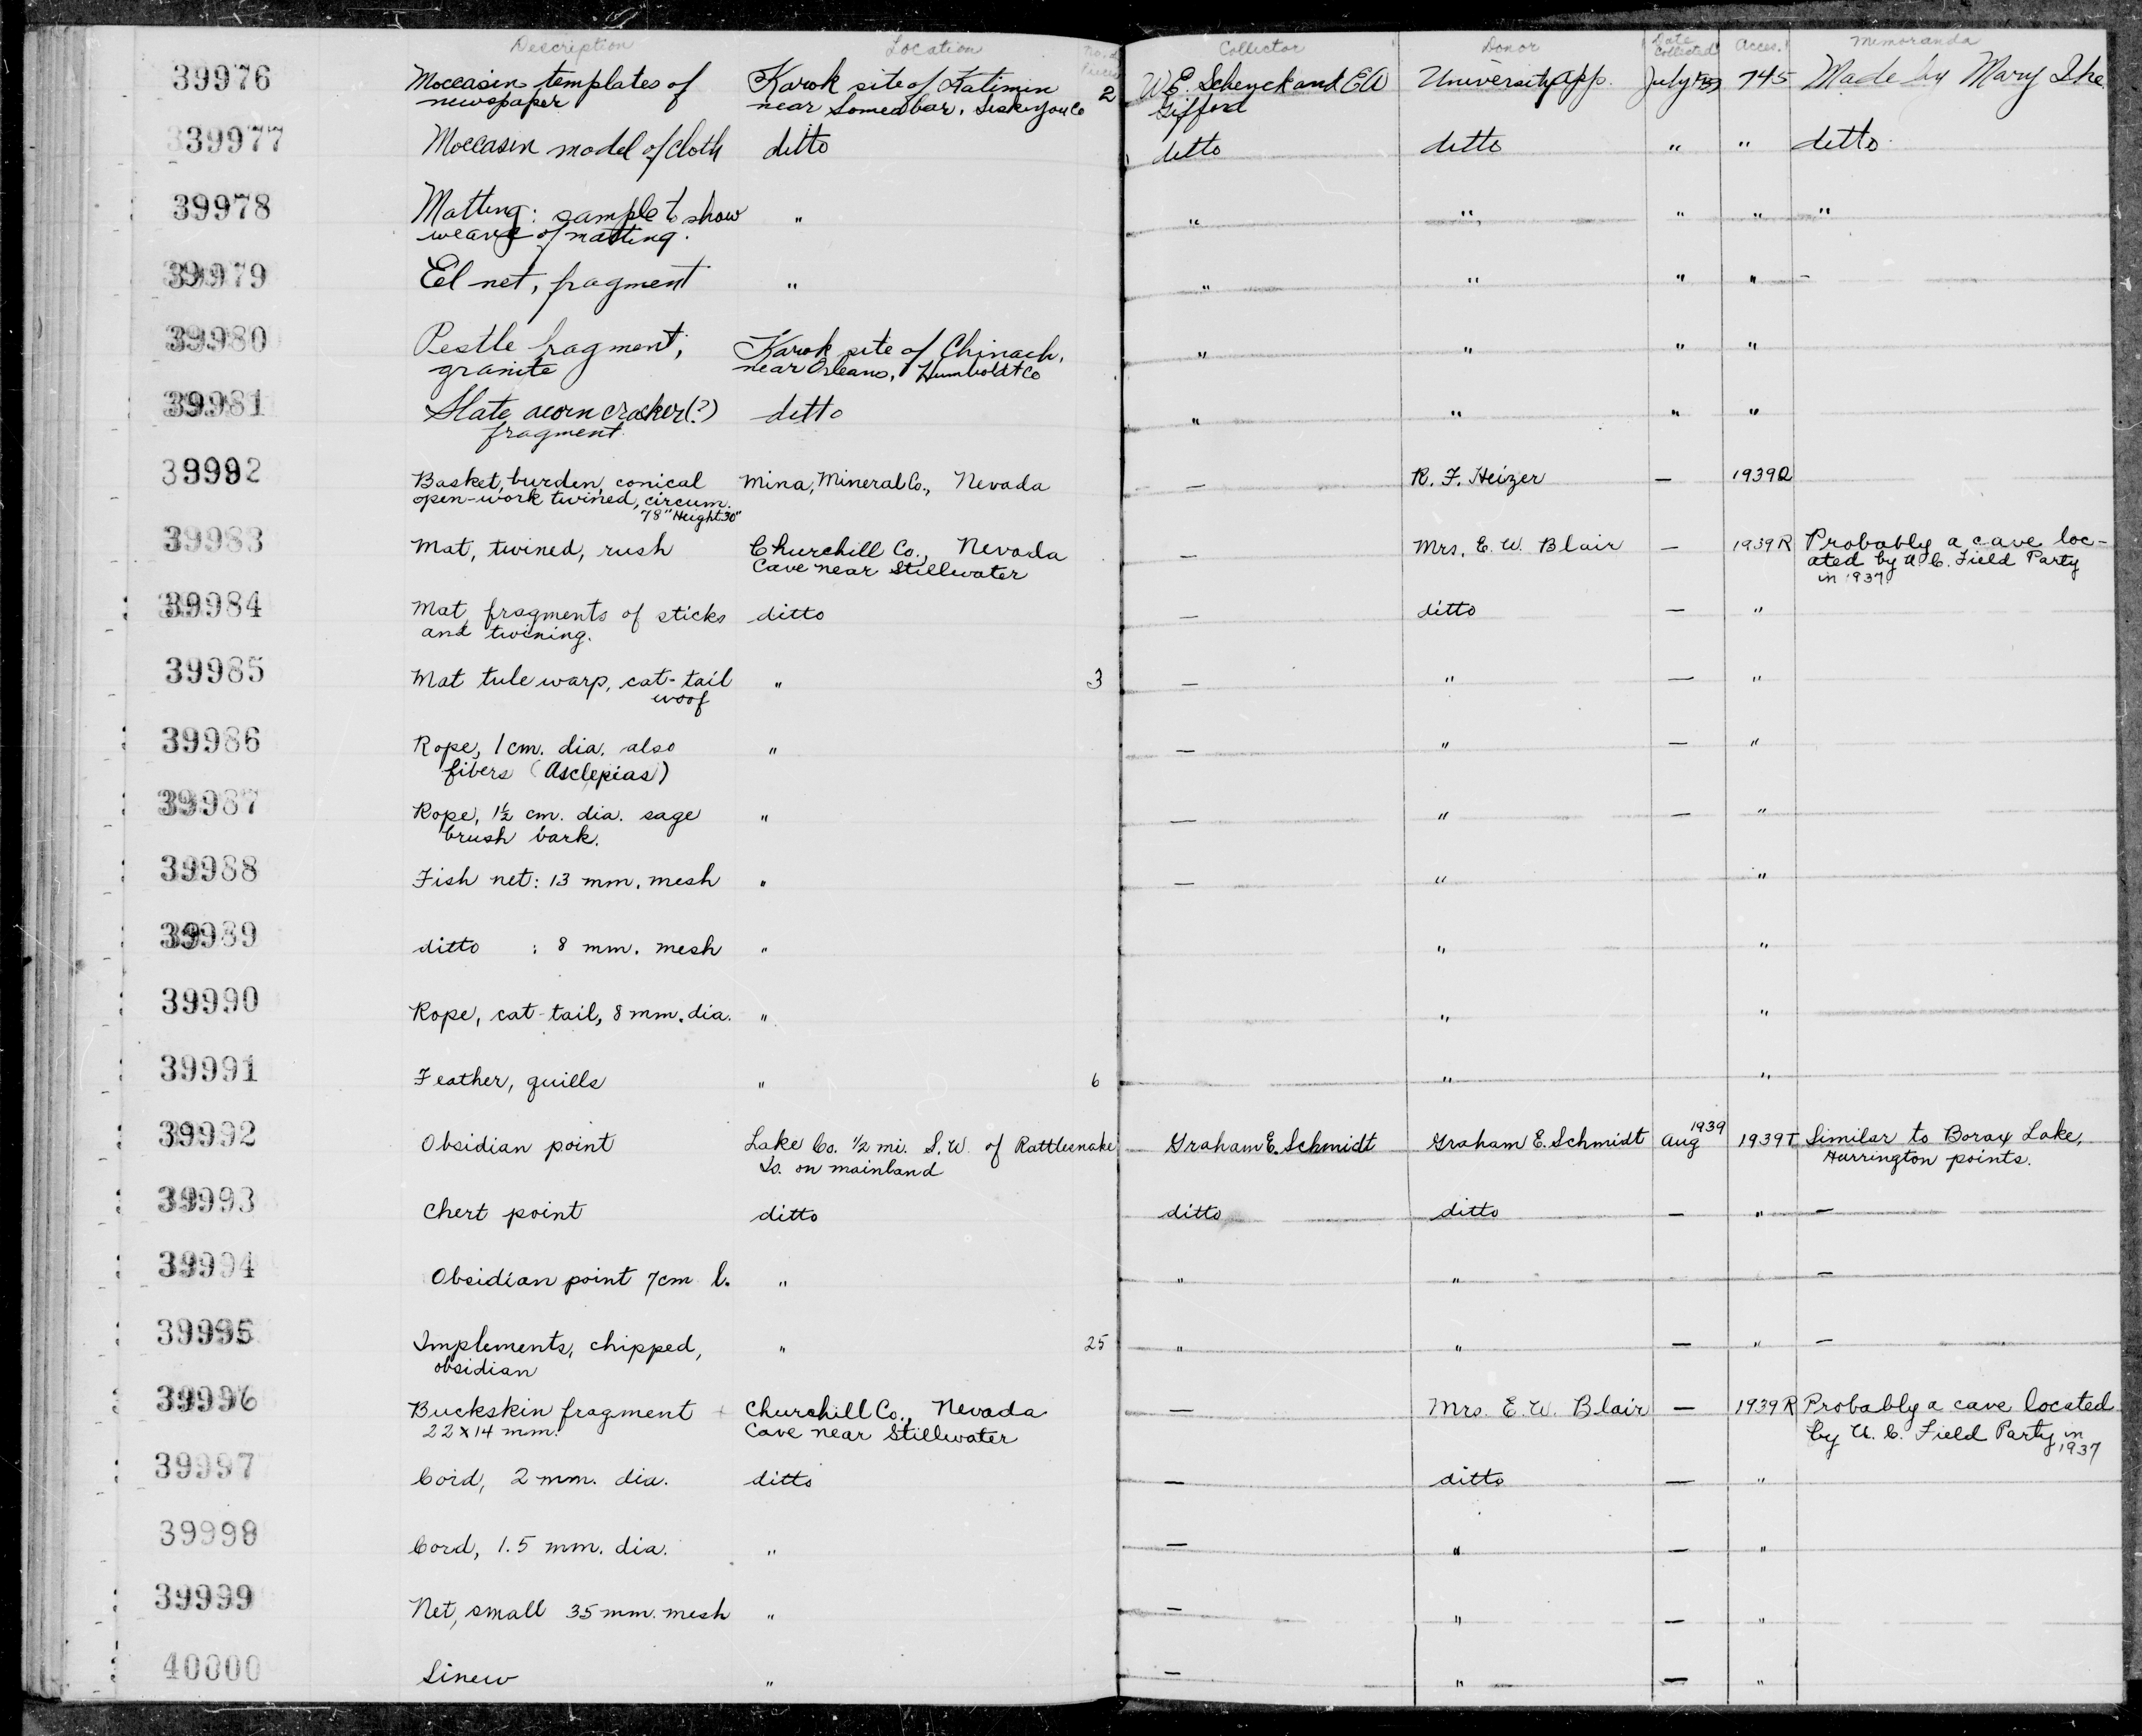 Description Location No. of Pieces Collector Donor Date Collected Acces. Memoranda
39976 Moccasin templates of Karok site of Katimin 2 W.E. Schenck and E.W. University App. July 745 Made by Mary Ike
newspaper near Somesbar, Siskiyou Co Gifford
39977 Moccasin model of cloth ditto ditto ditto " " ditto
39978 Matting: sample to show " " " " " "
weave of matting.
39979 Eel net, fragment " " " " " –
39980 Pestle fragment, Karok site of Chinach, " " " "
granite near Orleans, Humboldt Co
39981 Slate acorn cracker(?) ditto " " " "
fragment
39992 Basket, burden, conical Mina, Mineral Co., Nevada — R. F. Heizer — 1939Q
open-work twined, circum.
78" Height 30"
39983 Mat, twined, rush Churchill Co., Nevada — Mrs. E. W. Blair — 1939R Probably a cave loc-
Cave near Stillwater ated by U.C. Field Party
in 1937
39984 Mat, fragments of sticks ditto — ditto — "
and twining.
39985 Mat tule warp, cat-tail " 3 — " — "
woof
39986 Rope, 1 cm. dia. also " — " — "
fibers (Asclepias)
39987 Rope, 1½ cm. dia. sage " — " — "
brush bark.
39988 Fish net: 13 mm. mesh " — " "
39989 ditto : 8 mm. mesh " " "
39990 Rope, cat-tail, 8 mm. dia. " " "
39991 Feather, quills " 6 " "
39992 Obsidian point Lake Co. ½ mi. S.W. of Rattlesnake Graham E. Schmidt Graham E. Schmidt Aug 1939 1939T Similar to Borax Lake,
Is. on mainland Harrington points.
39993 Chert point ditto ditto ditto — " —
39994 Obsidian point 7cm l. " " " —
39995 Implements, chipped, " 25 " " — " —
obsidian
39996 Buckskin fragment Churchill Co., Nevada — Mrs. E. W. Blair — 1939R Probably a cave located
22 x 14 mm. Cave near Stillwater by U. C. Field Party in
1937
39997 Cord, 2 mm. dia. ditto — ditto — "
39998 Cord, 1.5 mm. dia. " — " — "
39999 Net, small 35 mm. mesh " — " — "
40000 Sinew " — " — "